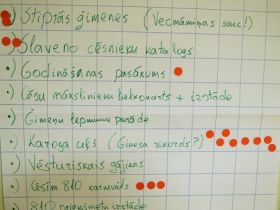 Stiprās ģimenes (Vecmāmiņas sauc!)
Slaveno cēsnieku katalogs
Godināšanas pasākums
Cēsu mākslinieku + izstāde
Ģimeņu parāde
Karoga ceļš (Ginesa rekords?)
Vēsturiskais gājiens
Cēsīm 810 karnevāls
810 priekšmetu izstāde